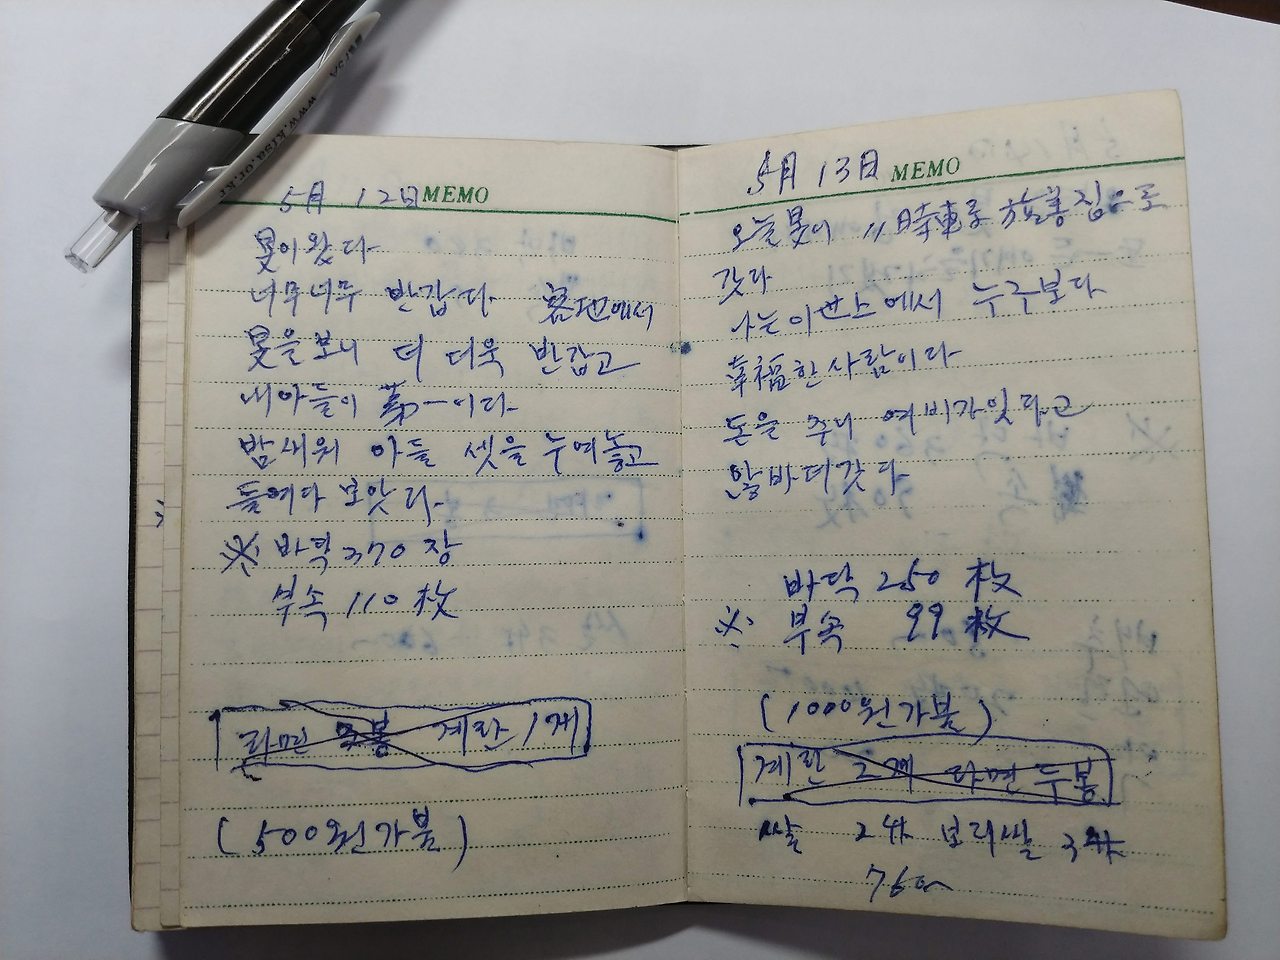 www.kisa.or.kr
5月 12日 MEMO
旻이왔다
너무너무 반갑다 客地에서
旻을보니 더 더욱 반갑고
내아들이 第一이다
밤새워 아들 셋을 누여놓고
들여다 보앗다
※ 바닥 270 장
부속 110 枚
라면 계란 1개
(500원가불)
5月 13日 MEMO
오늘旻이 11時車로 집으로
갓다
나는이世上에서 누구보다
幸福한사람이다
돈을 주니 여비가잇다고
않바더갓다
바닥 250 枚
※ 부속 99枚
(1000원가불)
계란 2개 라면두봉
쌀 2升 보리쌀 3升
760